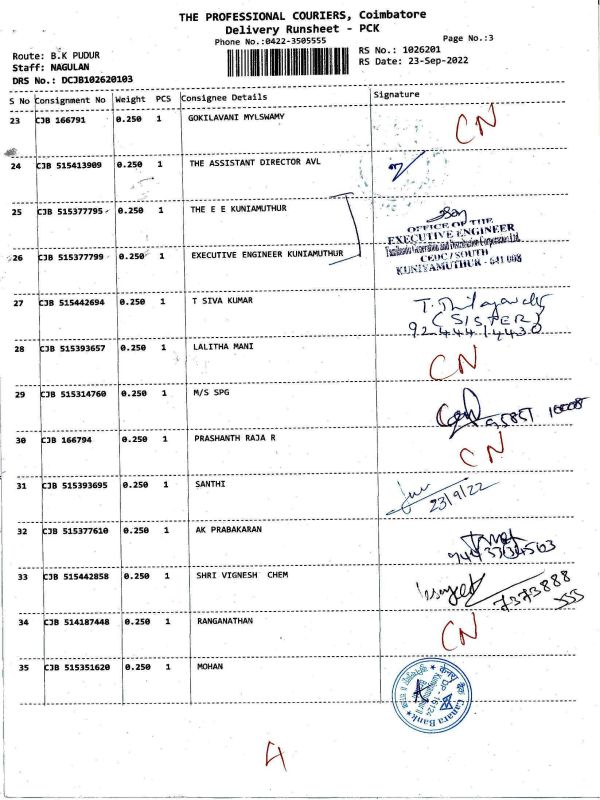 THE PROFESSIONAL COURIERS, Coimbatore
Delivery Runsheet - PCK
Phone No.:0422-3505555
Page No.:3
Route: B.K PUDUR
RS No.: 1026201
Staff: NAGULAN
RS Date: 23-Sep-2022
DRS No.: DCJB102620103
S No Consignment No Weight PCS Consignee Details Signature
23 CJB 166791 0.250 1 GOKILAVANI MYLSWAMY CN
24 CJB 515413909 0.250 1 THE ASSISTANT DIRECTOR AVL
25 CJB 515377795 0.250 1 THE E E KUNIAMUTHUR
OFFICE OF THE
EXECUTIVE ENGINEER
Tamilnadu Generation and Distribution Corporation Ltd.
CEDC / SOUTH
KUNIYAMUTHUR - 641 008
26 CJB 515377799 0.250 1 EXECUTIVE ENGINEER KUNIAMUTHUR
27 CJB 515442694 0.250 1 T SIVA KUMAR
(SISTER)
28 CJB 515393657 0.250 1 LALITHA MANI CN
29 CJB 515314760 0.250 1 M/S SPG
30 CJB 166794 0.250 1 PRASHANTH RAJA R CN
31 CJB 515393695 0.250 1 SANTHI
23/9/22
32 CJB 515377610 0.250 1 AK PRABAKARAN
33 CJB 515442858 0.250 1 SHRI VIGNESH CHEM
7373888
555
34 CJB 514187448 0.250 1 RANGANATHAN CN
35 CJB 515351620 0.250 1 MOHAN
Canara Bank
DP - 16124
4